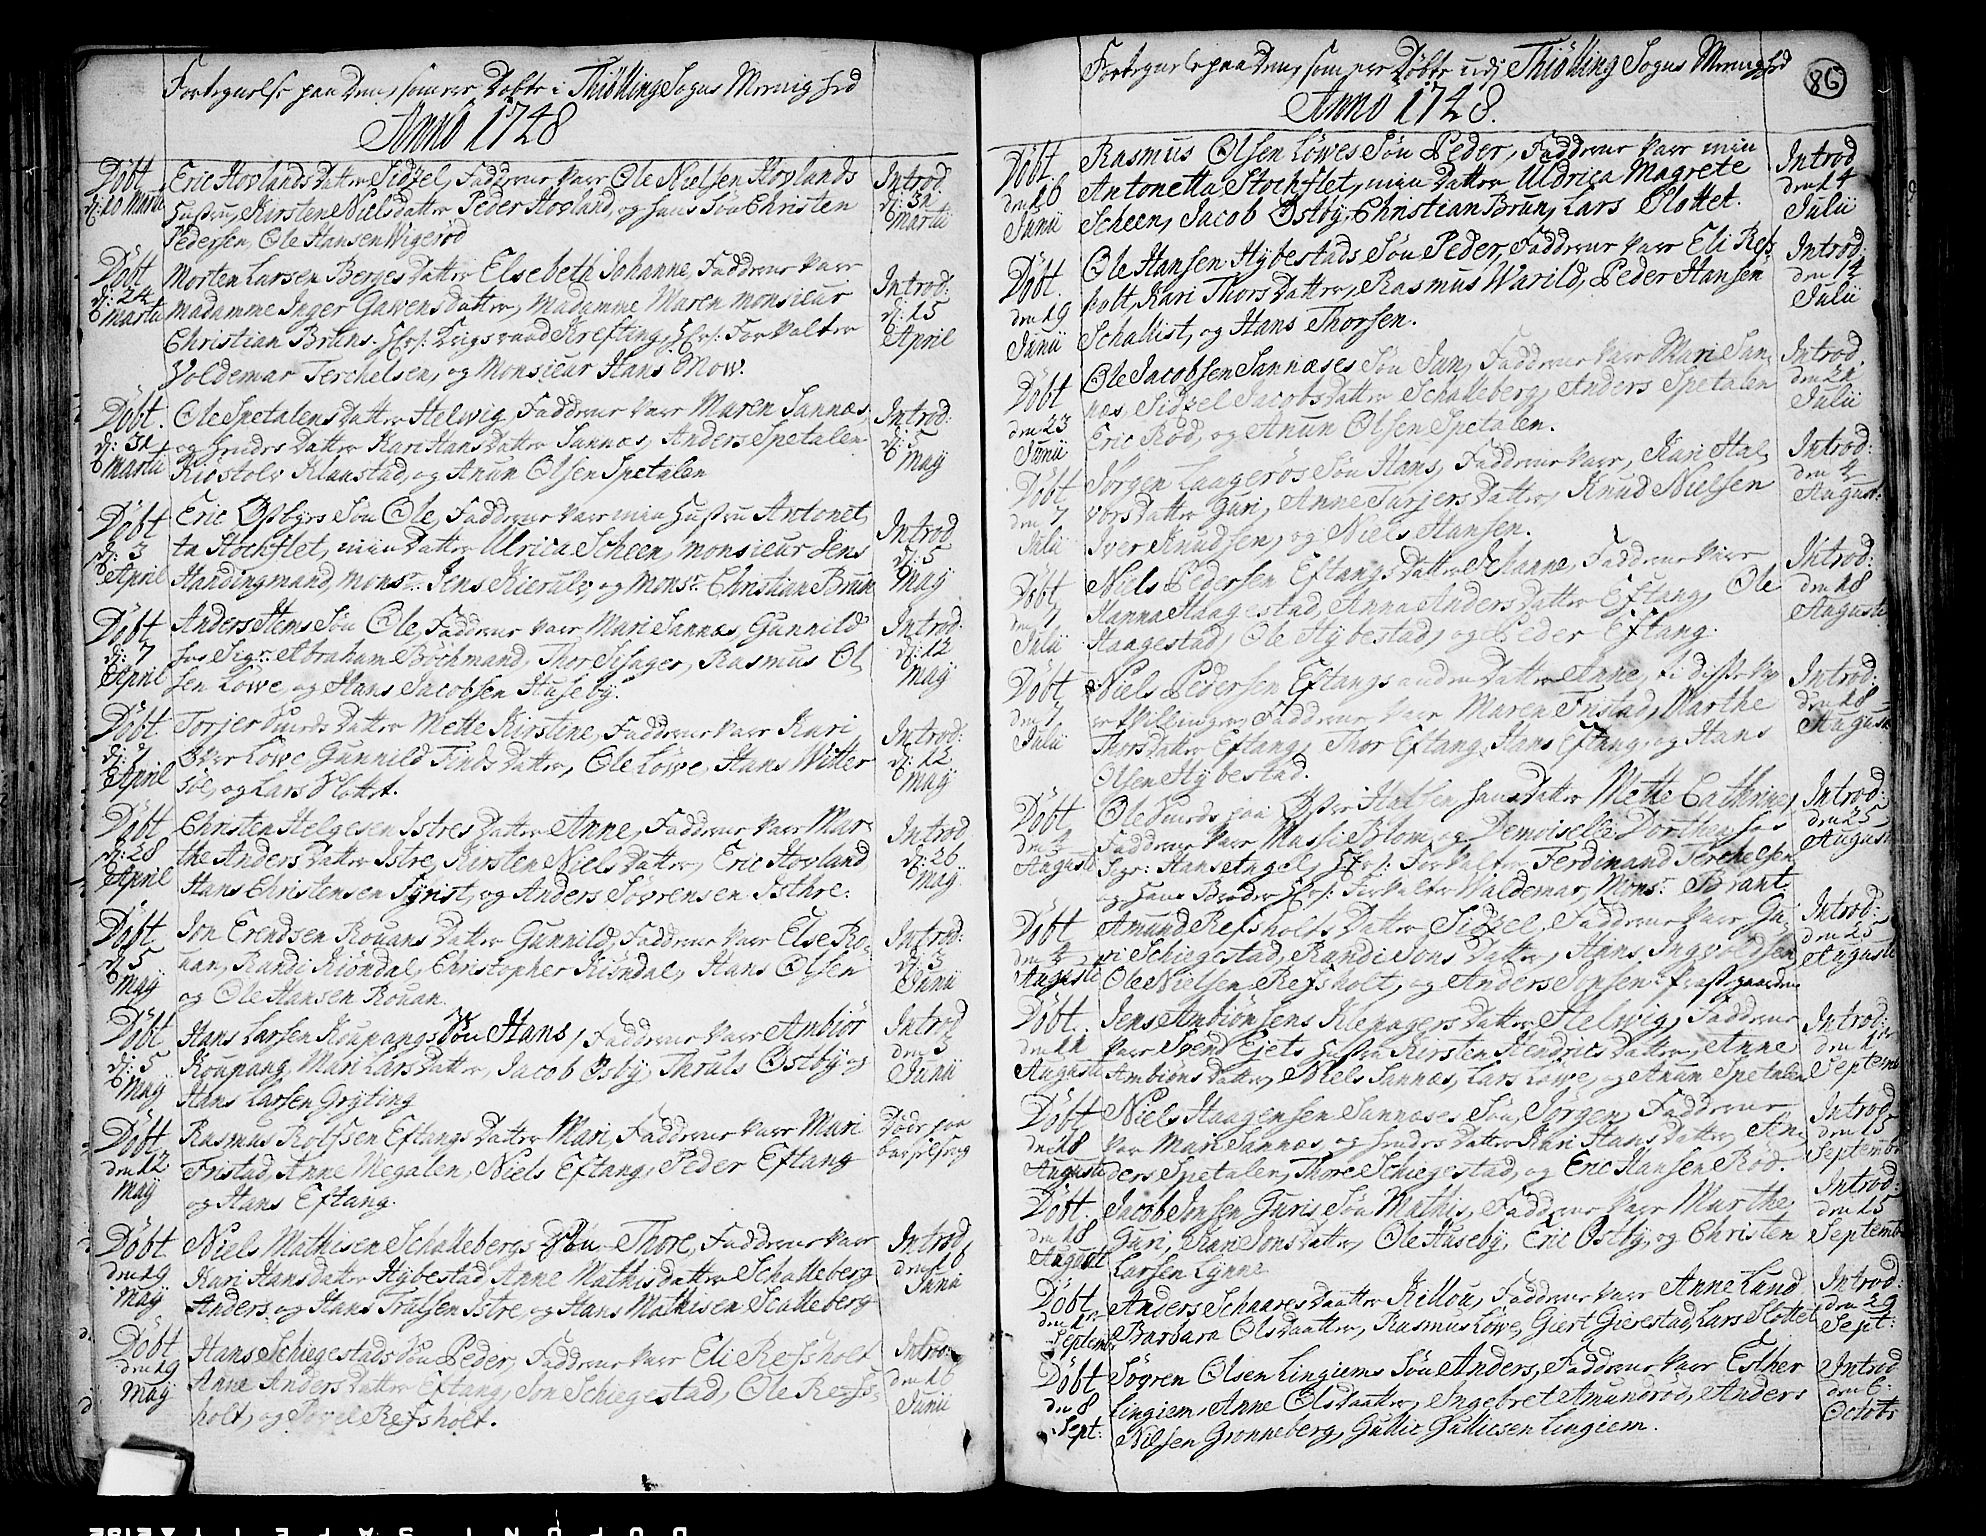 Fortegnelse paa dem, som ere Døbte i Thiølling Sogns Meenighed
Anno 1748
Døbt d: 10 Martii
Eric Hovlands Datter Sidzel, Faddrene vare Ole Nielsen Hovlands
Hustru, Kirsten Niels datter, Peder Hovland, og hans Søn Christen
Pedersen, Ole Hansen Wigerød
Introd: d: 31 Martii
Døbt d: 24 Martii
Morten Larsen Berges Datter Elsebeth Johanne, Faddrene vare
Madamme Inger Gawens Datter, Madamme Maren Monsieur
Christian Bruns. Hr: Krigsraad Krefting, Hr: Forvalter
Voldemar Terchelsen, og Monsieur Hans Mow.
Introd: d: 15 April
Døbt. d: 31 Martii
Ole Spetalens Datter Helwig, Faddrene vare Maren Sannæs,
og hendes Datter Kari Hans Datter Sannæs, Anders Spetalen
Kiostolv Klaustad, og Anun Olsen Spetalen
Introd: d: 5 May
Døbt d: 3 April
Eric Østbyes Søn Ole, Faddrene vare min Hustru Antonet
ta Stochflet, min Datter Ulrica Scheen, Monsieur Jens
Hardingmand, Monsr. Jens Kierulv, og Monsr. Christian Brun
Introd d: 5 May
Døbt d: 7 April
Anders Hems Søn Ole, Faddrene vare Mari Sannæs, Gunnild
hos Sigr. Abraham Bøchmand, Thor Seisager, Rasmus Ol
sen Løwe, og Hans Jacobsen Huseby.
Introd: d: 12 May
Døbt d: 7 April
Torjer Datter Mette Kirstine, Faddrene vare Kari
Iver Løwe, Gunnild Finds Datter, Ole Løwe, Hans Witter
søe, og Lars Slottet.
Introd: d: 12 May
Døbt d: 28 April
Christen Helgesen Istres Datter Anne, Faddrene vare Mar
the Anders Datter Istre, Kirsten Niels Datter, Eric Hovland
Hans Christensen Syrist, og Anders Søvrensen Isthre.
Introd d: 26 May
Døbt d: 5 May
Jon Erendsen Rouans Datter Gunnild, Faddrene vare Else Ro-
uan, Randi Kiøndal, Christopher Kiøndal, Hans Olsen
og Ole Hansen Rouan
Introd: d: 3 Junii
Døbt d: 5 May
Hans Larsen Koupangs Søn Hans, Faddrene vare Ambiør
Koupang, Mari Lars Datter, Jacob Øsby, Thruls Østby og
Hans Larsen Gryting
Introd den 3 Junii
Døbt den 12 May
Rasmus Rolfsen Eftangs Datter Mari, Faddrene vare Mari
Tristad, Anne Viegalen, Niels Eftang, Peder Eftang
og Hans Eftang.
Døde paa barselseng
Døbt den 19 May
Niels Mathisen Schallebergs Søn Thore, Faddrene vare
Kari Hans datter Hybestad, Anne Mathis datter Schalleberg
Anders og Hans Trulsen Istre, og Hans Mathisen Scalleberg
Introd, den 16 Junii
Døbt den 19 May
Hans Schiegestads Søn Peder, Faddrene vare Eli Refsholt
Anne Anders Datter Eftang, Jon Schiegestad, Ole Refs-
holt, og Povel Refsholt.
Introd: den 16 Junii
Fortegnelse paa dem, som ere Døbte udj Thiølling Sogns Meenighed
86
Anno 1748.
Døbt. den 16 Junii
Rasmus Olsen Løwes Søn Peder, Faddrene vare min
Antonetta Stochflet, min Datter Uldrica Magrete
Scheen, Jacob Østby, Christian Brun, Lars Slottet.
Introd den 14 Julii
Døbt. den 19 Junii
Ole Hansen Hybestads Søn Peder, Faddrene vare Eli Refs-
holt, Kari Thors Datter, Rasmus Warild, Peder Hansen
Schallist, og Hans Thorsen.
Introd: den 14 Julii
Døbt den 23 Junii
Ole Jacobsen Sannæses Søn Jan, Faddrene vare Mari San-
næs, Sidzel Jacobs Datter Schalleberg, Anders Spetalen
Eric Rød, og Anun Olsen Spetalen.
Introd. den 21 Julii
Døbt den 7 Julii
Jørgen Laagerøs Søn Hans, Faddrene vare, Kari Hal
vors Datter Guri, Anne Tarjers Datter, Knud Nielsen
Iver Knudsen, og Niels Hansen.
Introd: den 4 August:
Døbt den 7 Julii
Niels Pedersen Eftangs Datter Johanne, Faddrene vare
Hanna Haagestad, Anna Anders Datter Eftang, Ole
Haagestad, Ole Hybestad, og Peder Eftang.
Introd: den 18 Augusti
Døbt den 7 Julii
Niels Pedersen Eftangs anden Datter Anne, ti disse va-
re Tvillinger, Faddrene vare Maren Tristad, Marthe
Thors Datter Eftang, Thor Eftang, Hans Eftang, og Hans
Olsen Hybestad.
Introd: den 18 August
Døbt den 3 Augusti
Ole paa Øster Halsen hans Datter Mette Cathrine,
Faddrene vare Massi Blom, og Demoiselle Dorthea hos
Sigr: Hans Angel, Hr: Forvalter Ferdinand Terchelsen
og hans Broder Hr: Forvalter Waldemar, Monsr. Brant
Introd: den 25 August
Døbt den 4 Augusti
Amund Refsholts Datter Sidzel, Faddrene vare Gu-
ri Schiegestad, Randi Jons Datter, Hans Ingvoldsen
Ole Nielsen Refsholt, og Anders Jonsen Præstegaarden
Introd: den 25 Augusti
Døbt. den 11 Augusti
Jens Ambiønsens Klepagers Datter Helwig, Faddrene
vare Svend Ejets Hustru Kirsten Hendrics Datter, Anne
Ambiøns Datter, Niels Sannæs, Lars Løwe, og Anun Spetalen
Introd: den 1 Septemb
Døbt den 18 Augusti
Niels Haagensen Sannæses Søn Jørgen, Faddrene
var Mari Sannæs, og hendes Datter Kari Hans Datter, An-
ders Spetalen, Thore Schiegestad, og Eric Hansen Rød.
Introd: den 15 Septembr
Døbt. den 18 Augusti
Jacob Jonsen Guris Søn Mathis, Faddrene vare Marthe
Guri, Kari Jons Datter, Ole Huseby, Eric Østby, og Christen
Larsen Lynne
Introd: den 15 Septemb
Døbt den 1 Septemb
Anders Schaares Datter Killou, Faddrene vare Anne Lund
Barbara Ols Datter, Rasmus Løwe, Giert Gierestad, Lars Slottet
Introd: den 29 Sept:
Døbt den 8 Sept:
Søvren Olsen Lingiems Søn Anders, Faddrene vare Esther
Lingiem, Anne Ols Datter, Ingebret Amundrød, Anders
Nilsen Grønneberg, Gullic Gullicsen Lingiem.
Introd den 6 Octobr